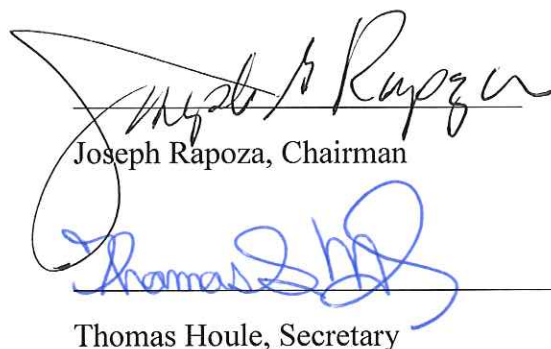 Joseph G Rapoza
Joseph Rapoza, Chairman
Thomas
Thomas Houle, Secretary